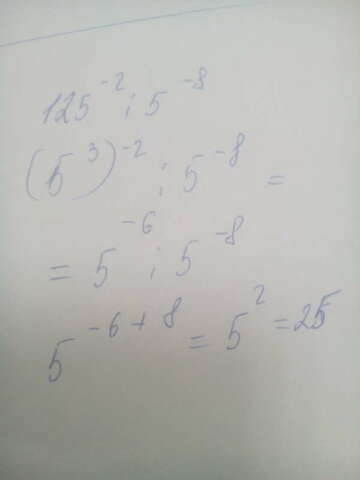 125⁻² : 5⁻⁸
(5³)⁻² : 5⁻⁸ =
= 5⁻⁶ : 5⁻⁸
5⁻⁶⁺⁸ = 5² = 25